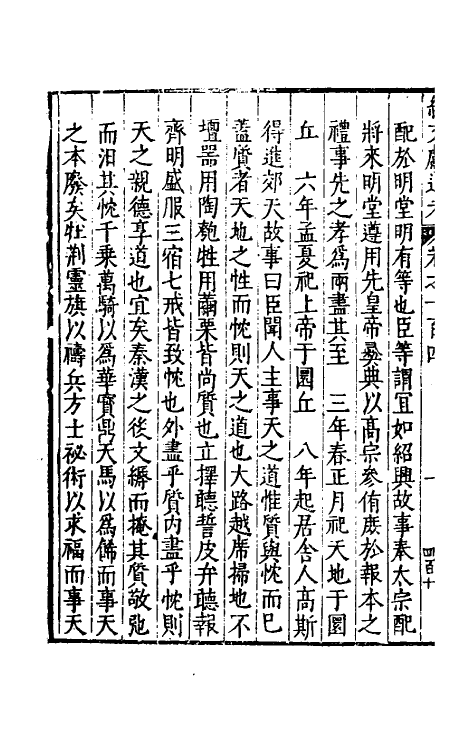 續文獻通考　卷之一百四　一　四百十
配於明堂明有等也臣等謂宜如紹興故事奉太宗配
將來明堂遵用先皇帝彞典以高宗參侑庶於報本之
禮事先之孝爲兩盡其至　三年春正月祀天地于圜
丘　六年孟夏祀上帝于圜丘　八年起居舍人高斯
得進郊天故事曰臣聞人主事天之道惟質與忱而巳
葢質者天地之性而忱則天之道也大路越席掃地不
壇器用陶匏牲用繭栗皆尚質也立擇聽誓皮弁聽報
齊明盛服三宿七戒皆致忱也外盡乎質内盡乎忱則
天之親德享道也宜矣秦漢之後文縟而掩其質敬弛
而汨其忱千乘萬騎以爲華寶鼎天馬以爲佈而事天
之本廢矣牡荆靈旗以禱兵方士祕術以求福而事天